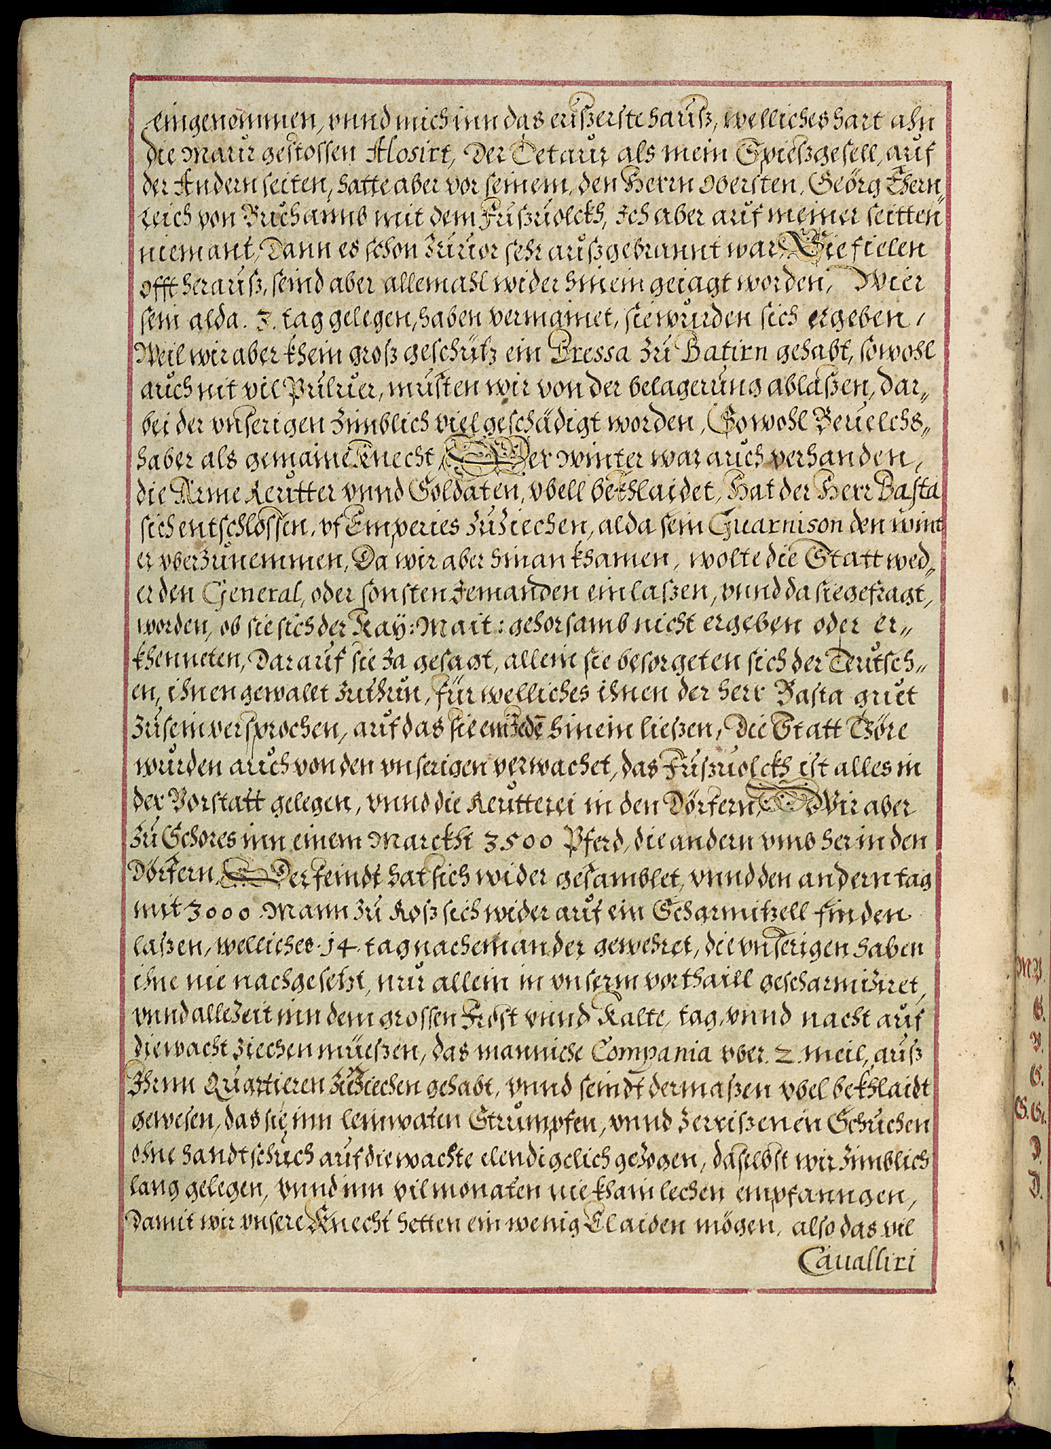 eingenommen, vnnd mich inn das eüßerste hauß, welliches hart ahn
die Maur gestossen Alosirt, Der Tetaur als mein Spießgesell, auf
der Andern seiten, hatte aber vor seinem, den Herrn Obersten, Geörg Ehern
reich von Buchaimb mit dem Fußuolckh, Ich aber auf meiner seitten
niemant, Dann es schon zuuor sehr außgebrannt war, Sie fielen
offt herauß, seind aber allemahl wider hinein geiagt worden, Wier
sein alda . 3 . tag gelegen, haben vermainet, sie wurden sich ergeben,
Weil wir aber khein groß geschütz ein Bressa zu Batirn gehabt, sowohl
auch nit vil Puluer, musten wir von der belagerung ablaßen, dar„
bei der vnserigen zimblich viel geschädigt worden, Sowohl Beuelchs„
haber als gemaine Knecht, Der winter war auch verhanden,
die Arme Reutter vnnd Soldaten, vbell bekhlaidet, Hat der Herr Basta
sich entschlossen, vf Emperies zuziechen, alda sein Guarnison den wint
er vberzunemmen, Da wir aber hinan khamen, wolte die Statt wed„
er den General, oder sonsten Jemanden einlaßen, vnnd da sie gefragt,
worden, ob sie sich der Kaÿ: Mait: gehorsamb nicht ergeben oder er„
khenneten, Darauf sie Ja gesagt, allein sie besorgeten sich der Teutsch„
en, ihnen gewalt zuthun, für welliches ihnen der herr Basta guet
zusein versprochen, auf das sie ein Jedē hinein ließen, Die Statt Thöre
wurden auch von den vnserigen verwachet, das Fußuolckh ist alles in
der Vorstatt gelegen, vnnd die Reutterei in den Dörfern, Wir aber
zu Schores inn einem Marckht 3500 Pferd, die andern vmb her in den
Dörfern, Der feindt hat sich wider gesamblet, vnnd den andern tag
mit 3000 Mann zu Roß sich wider auf ein Scharmitzell finden
laßen, welliches . 14 . tag nacheinander gewehret, die vnserigen haben
ihne nie nachgesetzt, nur allein in vnserm vorthaill gescharmiziret,
vnnd allezeit inn dem grossen Frost vnnd Kalte, tag vnnd nacht auf
die wacht ziechen müeßen, das manniche Compania vber . 2 . meil, auß
Ihrnn Quartieren zuziechen gehabt, vnnd seindt dermaßen vbel bekhlaidt
gewesen, das sie inn leinwaten Strümpfen, vnnd zerrißenen Schuchen
ohne handtschuch auf die wachte elendigelich gezogen, daselbst wir zimblich
lang gelegen, vnnd inn vil monaten nie khain lechen empfanngen,
Damit wir vnsere Knecht hetten ein wenig Claiden mögen, also das vil
Caualliri